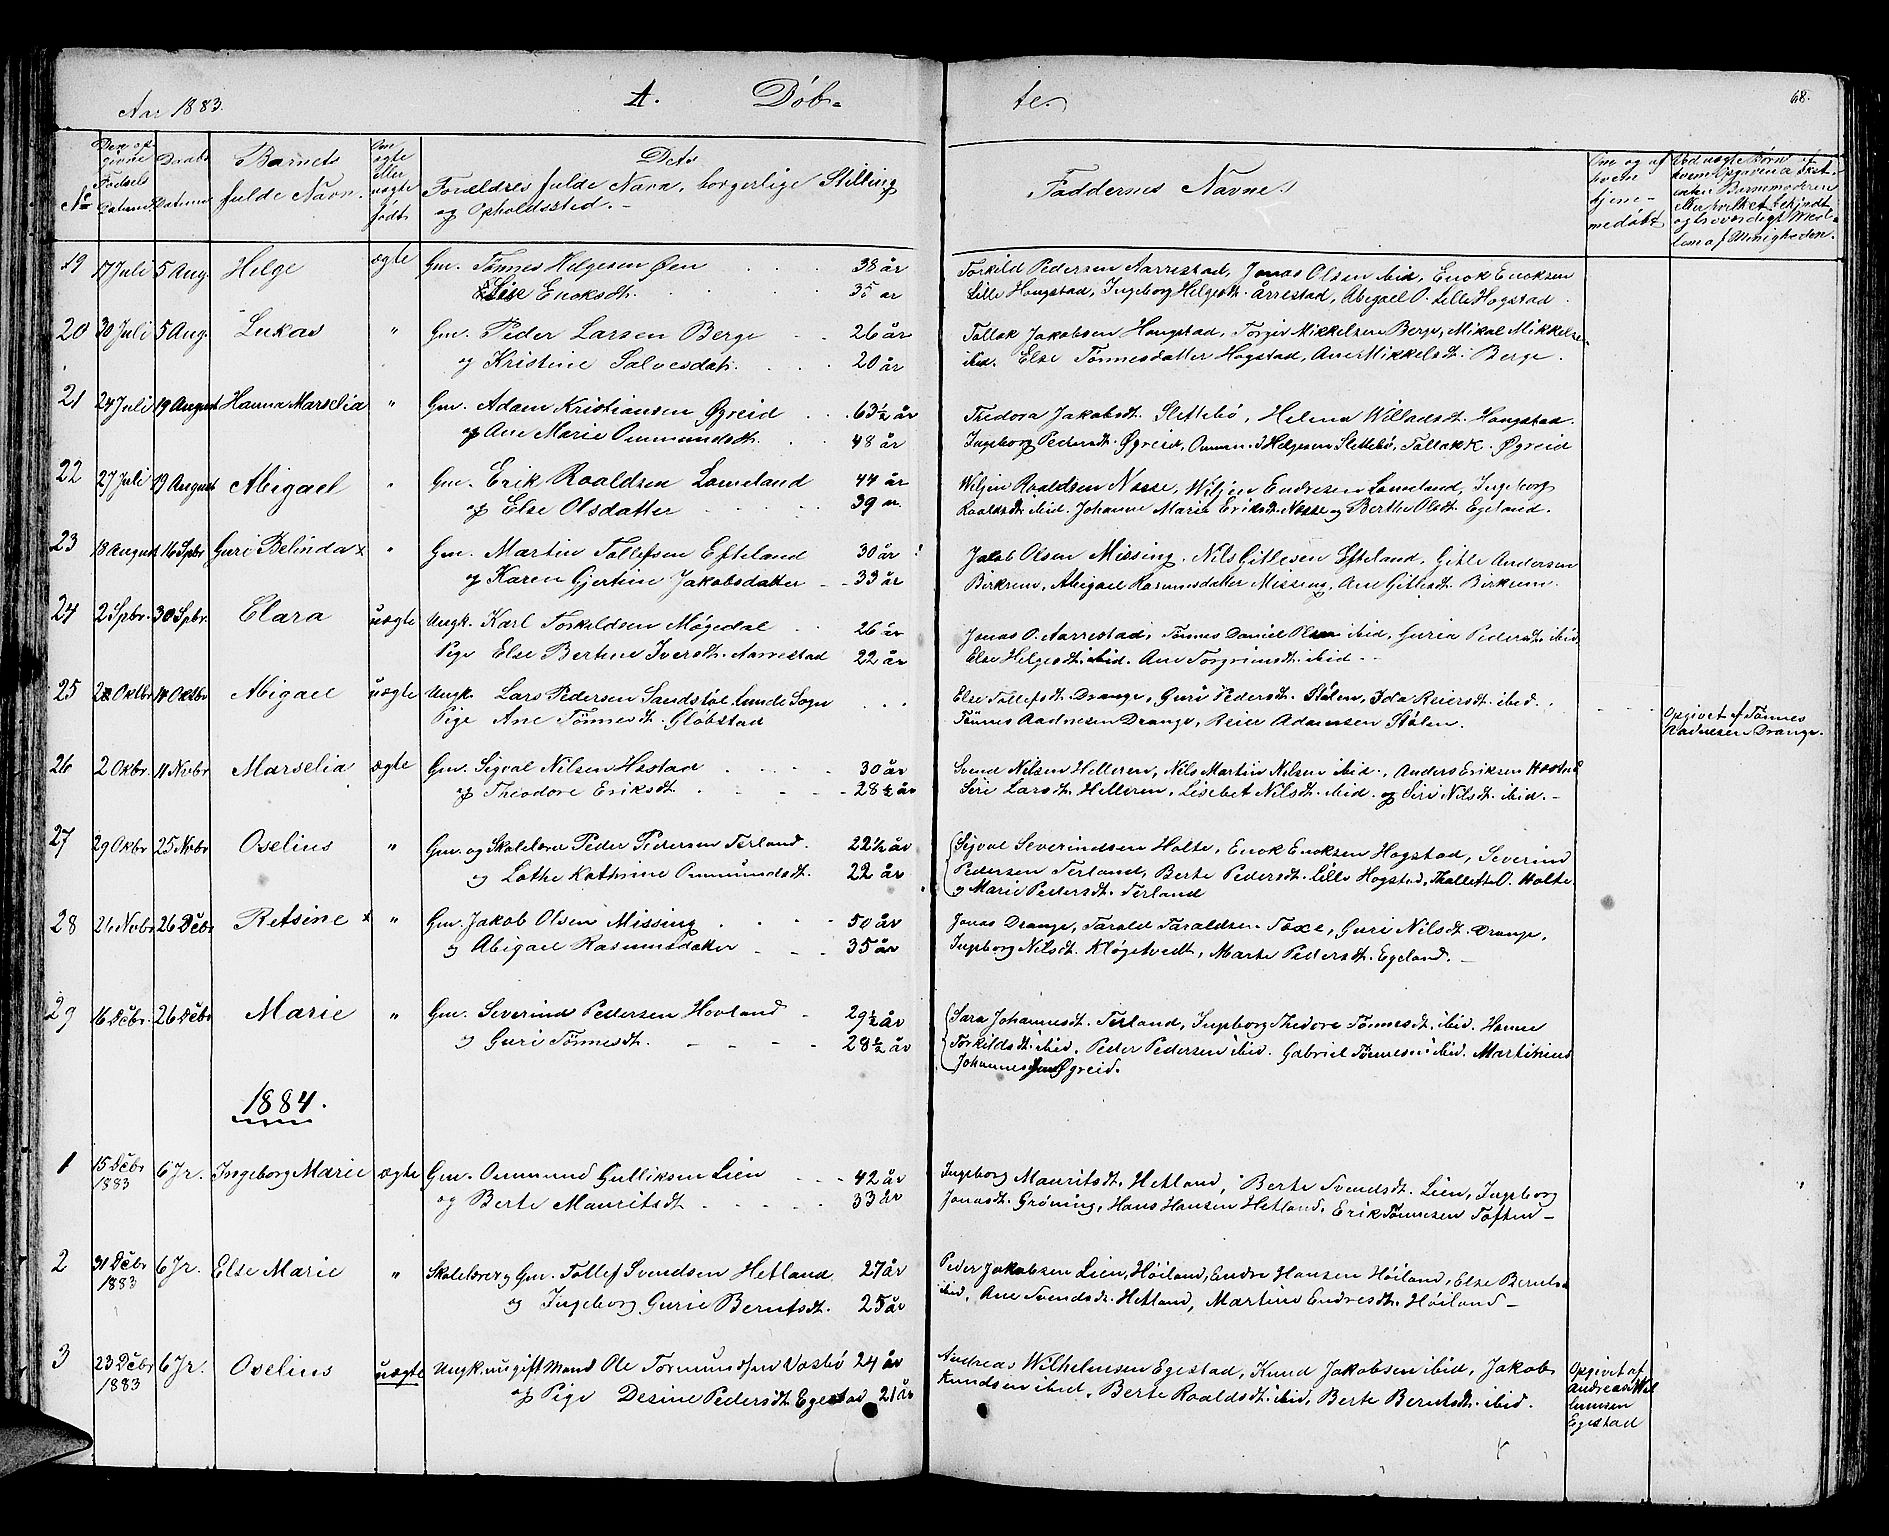 Aar 1883. A. Døb- te. 68.
No Den opgivne Fødsels Datum Daabs Datum Barnets fulde Navn. Om ægte eller uægte født Dets Forældres fulde Navn, borgerlige Stilling og Opholdssted. Faddernes Navne. Om og af hvem hjemmedøbt Ved uægte Børn af hvem Opgivena
19 17 Juli 5 Aug. Helge ægte Gm. Tønnes Helgesen Øen 38 år Torkild Pedersen Aarrestad, Jonas Olsen ibid, Enok Enoksen
Enoksdt. 35 år Lille Hougstad, Ingeborg Helgesdt. Årrestad, Abigael O. Lille Hogstad.
20 30 Juli 5 Aug. Lukas " Gm. Peder Larsen Berge 26 år Tollak Jakobsen Hougstad, Torger Mikkelsen Berge, Mikal Mikkelse-
og Kristine Salvesdatr. 20 år ibid. Else Tønnesdatter Hogstad, Ane Mikkelsdt. Berge.
21 24 Juli 19 August Hanna Marselia " Gm. Adam Kristiansen Øgreid 63½ år Thedora Jakobsdt. Slettebø, Helena Willadsdt. Hougstad.
og Ane Marie Ommundsdt. 48 år Ingeborg Pedersdt. Øgreid, Ommund Helgesen Slettebø, Tollak K. Øgreid
22 27 Juli 19 August Abigael " Gm. Erik Roaldsen Lomeland 44 år Wiljen Roaldsen Nesse, Wiljen Endresen Lomeland, Ingeborg
og Else Olsdatter 39 " Roaldsdt. ibid. Johanne Marie Eriksdt. Nesse og Berthe Olsdt. Egeland.
23 18 August 16 Spbr. Guri Belinda x " Gm. Martin Tollefsen Efteland 30 år Jakob Olsen Missing, Nils Gitlesen Efteland, Gitle Andersen
og Karen Gjertine Jakobsdatter 33 år Birkrem, Abigael Rasmusdatter Missing, Ane Gitlesdt. Birkrem.
24 2 Spbr. 30 Spbr. Elara uægte Ungk. Karl Torkildsen Møgedal 26 år Jonas O. Aarrestad, Tønnes Daniel Olsen ibid, Guria Pedersdt. ibid
Pige Else Bertine Iversdt. Aarrestad 22 år Else Helgesdt. ibid. Ane Torgrimsdt. ibid
25 Oktbr. Oktbr Abigael uægte Ungk. Lars Pedersen Sandstøl Lunde Sogn Else Tollefsdt. Drange, Guri Pedersdt. Stølen, Ida Reiersdt. ibid.
Pige Ane Tønnesdt. Gløbstad Tønnes Aadnesen Drange, Reier Adamsen Stølen. Opgivet af Tønnes
Aadnesen Drange.
26 2 Okbr. 11 Novbr Marselia ægte Gm. Sigval Nilsen Hostad 30 år Svend Nilsen Helleren, Nils Martin Nilsen ibid., Anders Eriksen
og Theodore Eriksdt. 28½ år Siri Larsdt. Helleren, Lisebet Nilsdt. ibid. og Siri Nilsdt. ibid.
27 29 Okbr 25 Nvbr Oselius " Gm. og Skolelærer Peder Pedersen Terland. 22½ år Sigval Severindsen Holte, Enok Enoksen Hogstad, Severind
og Lothe Kathrine Ommundsdt. 22 år Pedersen Terland, Berte Pedersdt. Lille Hogstad, Thallette O. Holte
og Marie Pedersdt. Terland
28 Nvbr 26 Dcbr Retsine x " Gm. Jakob Olsen Missing 50 år Jonas Drange, Tarald Taraldsen Toxe, Guri Nilsdt. Drange,
og Abigael Rasmusdatter 35 år Ingeborg Nilsdt. Kløgetvedt, Marte Pedersdt. Egeland.
29 16 Dcbr. 26 Dcbr Marie " Gm. Severind Pedersen Hovland 29½ år Sara Johannesdt. Terland, Ingeborg Thedore Tønnesdt. ibid. Hanne
og Guri Tønnesdt. 28½ år Torkildsdt. ibid, Peder Pedersen ibid. Gabriel Tønnesen ibid. Martinius
Johannesen Øgreid.
1884.
1 15 Dcbr 1883 6 Jr. Ingeborg Marie ægte Gm. Ommund Gulliksen Lien 42 år Ingeborg Mauritsdt. Hetland, Berte Svendsdt. Lien, Ingeborg
og Berte Mauritsdt 33 år Jonasdt. Grøning, Hans Hansen Hetland, Erik Tønnesen Toften
2 31 Dcbr 1883 6 Jr. Else Marie " Skolelærer og Gm. Tollef Svendsen Hetland 27 år Peder Jakobsen Lien, Høiland, Endre Hansen Høiland, Else Berntsd
og Ingeborg Gurie Berntsdt. 25 år ibid, Ane Svendsdt. Hetland, Martine Endresdt. Høiland
3 23 Dcbr 1883 6 Jr. Oselius uægte Ungk. ugift Mand Ole Tormundsen Vasbø 24 år Andreas Wilhelmsen Egestad, Knud Jakobsen ibid, Jakob
og Pige Desine Pedersdt. Egestad 21 år Knudsen ibid, Berte Roaldsdt. ibid, Berte Berntsdt. ibid.
Opgivet af
Andreas Wil
helmsen
Egestad